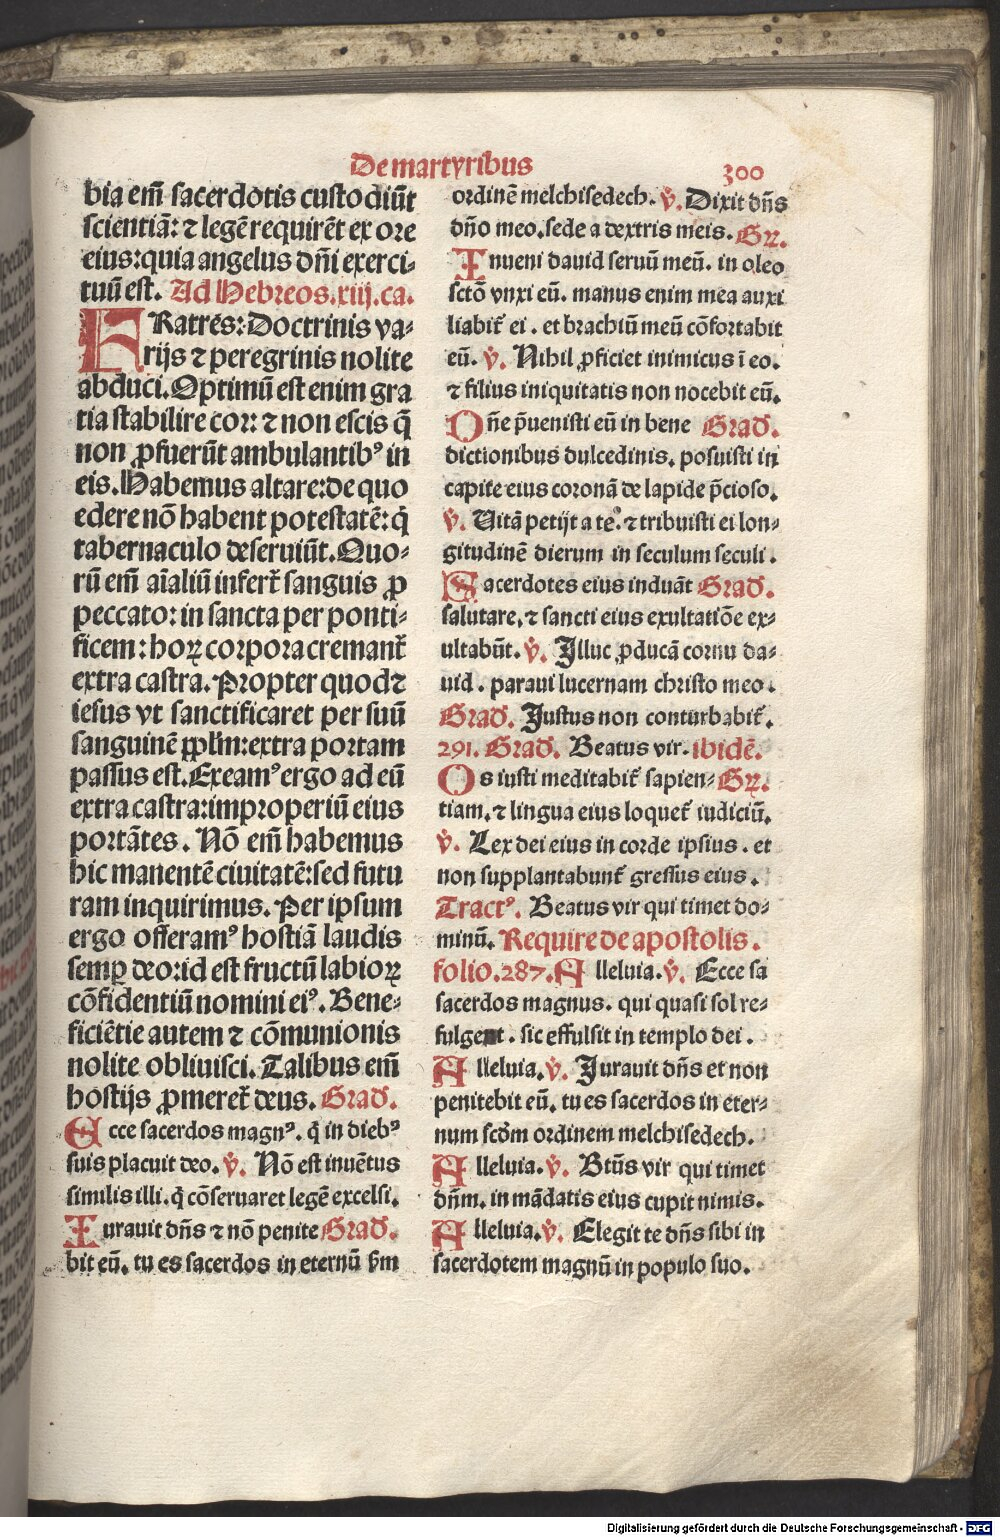 De martyribus
300
bia em̄ sacerdotis custodiūt
scientiā: ⁊ legē requirēt ex ore
eius: quia angelus dn̄i exerci⸗
tuū est. Ad Hebreos. xiij. ca.
FRatres: Doctrinis va⸗
rijs ⁊ peregrinis nolite
abduci. Optimū est enim gra
tia stabilire cor: ⁊ non escis q̄
non ꝓfuerūt ambulantibꝰ in
eis. Habemus altare: de quo
edere nō habent potestatē: q̇
tabernaculo deseruiūt. Quo⸗
rū em̄ aīaliū infert᷑ sanguis ꝓ
peccato: in sancta per ponti⸗
ficem: hoꝝ corpora cremant᷑
extra castra. Propter quod ⁊
iesus vt sanctificaret per suū
sanguinē pp̄lm: extra portam
passus est. Exeamꝰ ergo ad eū
extra castra: improperiū eius
portātes. Nō em̄ habemus
hic manentē ciuitatē: sed futu
ram inquirimus. Per ipsum
ergo offeramꝰ hostiā laudis
semꝑ deo: id est fructū labioꝝ
cōfidentiū nomini eiꝰ. Bene⸗
ficiētie autem ⁊ cōmunionis
nolite obliuisci. Talibus em̄
hostijs ꝓmeret᷑ deus. Grad̄.
Ecce sacerdos magnꝰ. q̇ in diebꝰ
suis placuit deo. v̄. Nō est inuētus
similis illi. q̇ cōseruaret legē excelsi.
Iurauit dn̄s ⁊ nō penite Grad̄.
bit eū. tu es sacerdos in eternū s̄m
ordinē melchisedech. v̄. Dixit dn̄s
dn̄o meo. sede a dextris meis. Gꝝ.
Inueni dauid seruū meū. in oleo
sctō vnxi eū. manus enim mea auxi
liabit᷑ ei. et brachiū meū cōfortabit
eū. v̄. Nihil ꝓficiet inimicus ī eo.
⁊ filius iniquitatis non nocebit eū.
Dn̄e p̄uenisti eū in bene Grad̄.
dictionibus dulcedinis. posuisti in
capite eius coronā de lapide p̄cioso.
v̄. Uitā petijt a te. ⁊ tribuisti ei lon⸗
gitudinē dierum in seculum seculi.
Sacerdotes eius induāt Grad̄.
salutare. ⁊ sancti eius exultatiōe ex⸗
ultabūt. v̄. Illuc ꝓducā cornu da⸗
uid. paraui lucernam christo meo.
Grad̄. Iustus non conturbabit᷑.
291. Grad̄. Beatus vir. ibidē.
Os iusti meditabit᷑ sapien⸗ Gꝝ.
tiam. ⁊ lingua eius loquet᷑ iudiciū.
v̄. Lex dei eius in corde ipsius. et
non supplantabunt᷑ gressus eius.
Tractꝰ. Beatus vir qui timet do⸗
minū. Require de apostolis.
folio. 287. Alleluia. v̄. Ecce sa
sacerdos magnus. qui quasi sol re⸗
fulgent. sic effulsit in templo dei.
Alleluia. v̄. Iurauit dn̄s et non
penitebit eū. tu es sacerdos in eter⸗
num scd̄m ordinem melchisedech.
Alleluia. v̄. Btūs vir qui timet
dn̄m. in mādatis eius cupit nimis.
Alleluia. v̄. Elegit te dn̄s sibi in
sacerdotem magnū in populo suo.
Digitalisierung gefördert durch die Deutsche Forschungsgemeinschaft - DFG